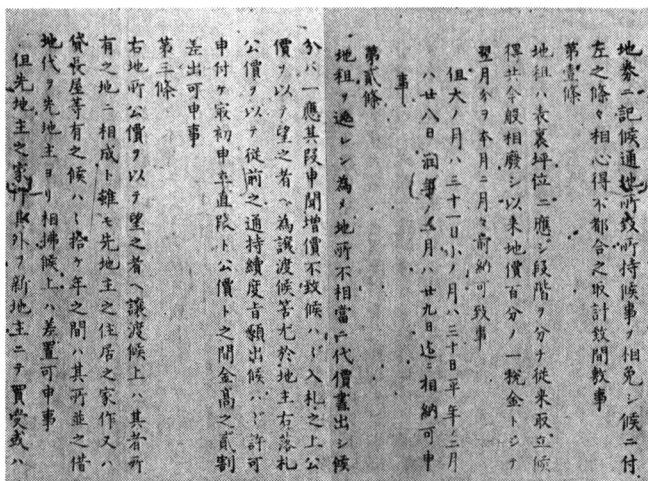 地券ニ記候通地所致所持候事ヲ相免シ候ニ付
左之條々相心得不都合之取計致間敷事
第壹條
地租ハ表裏坪位ニ應シ段階ヲ分チ従来取立候
得共今般相廢シ以来地價百分ノ一税金トシテ
翌月分ヲ本月二月ニ前納可致事
但大ノ月ハ三十一日小ノ月ハ三十日平年二月
ハ廿八日潤年ノ二月ハ廿九日迄ニ相納可申
事
第貳條
地租ヲ遁レン為メ地所不相當ニ代價書出シ候
分ハ一應其段申聞増價不致候ハヽ入札之上公
價ヲ以テ望之者ヘ為譲渡候筈尤於地主右落札
公價ヲ以テ従前之通持續度旨願出候ハヽ許可
申付ケ最初申立直段ト公價ト之間金高之貳割
差出可申事
第三條
右地所公價ヲ以テ望之者ヘ譲渡候上ハ其者所
有之地ニ相成ト雖モ先地主之住居之家作又ハ
貸長屋等有之候ハヽ拾ヶ年之間ハ其所並之借
地代ヲ先地主ヨリ相拂候上ハ差置可申事
但先地主之家作其外ヲ新地主ニテ買受或ハ